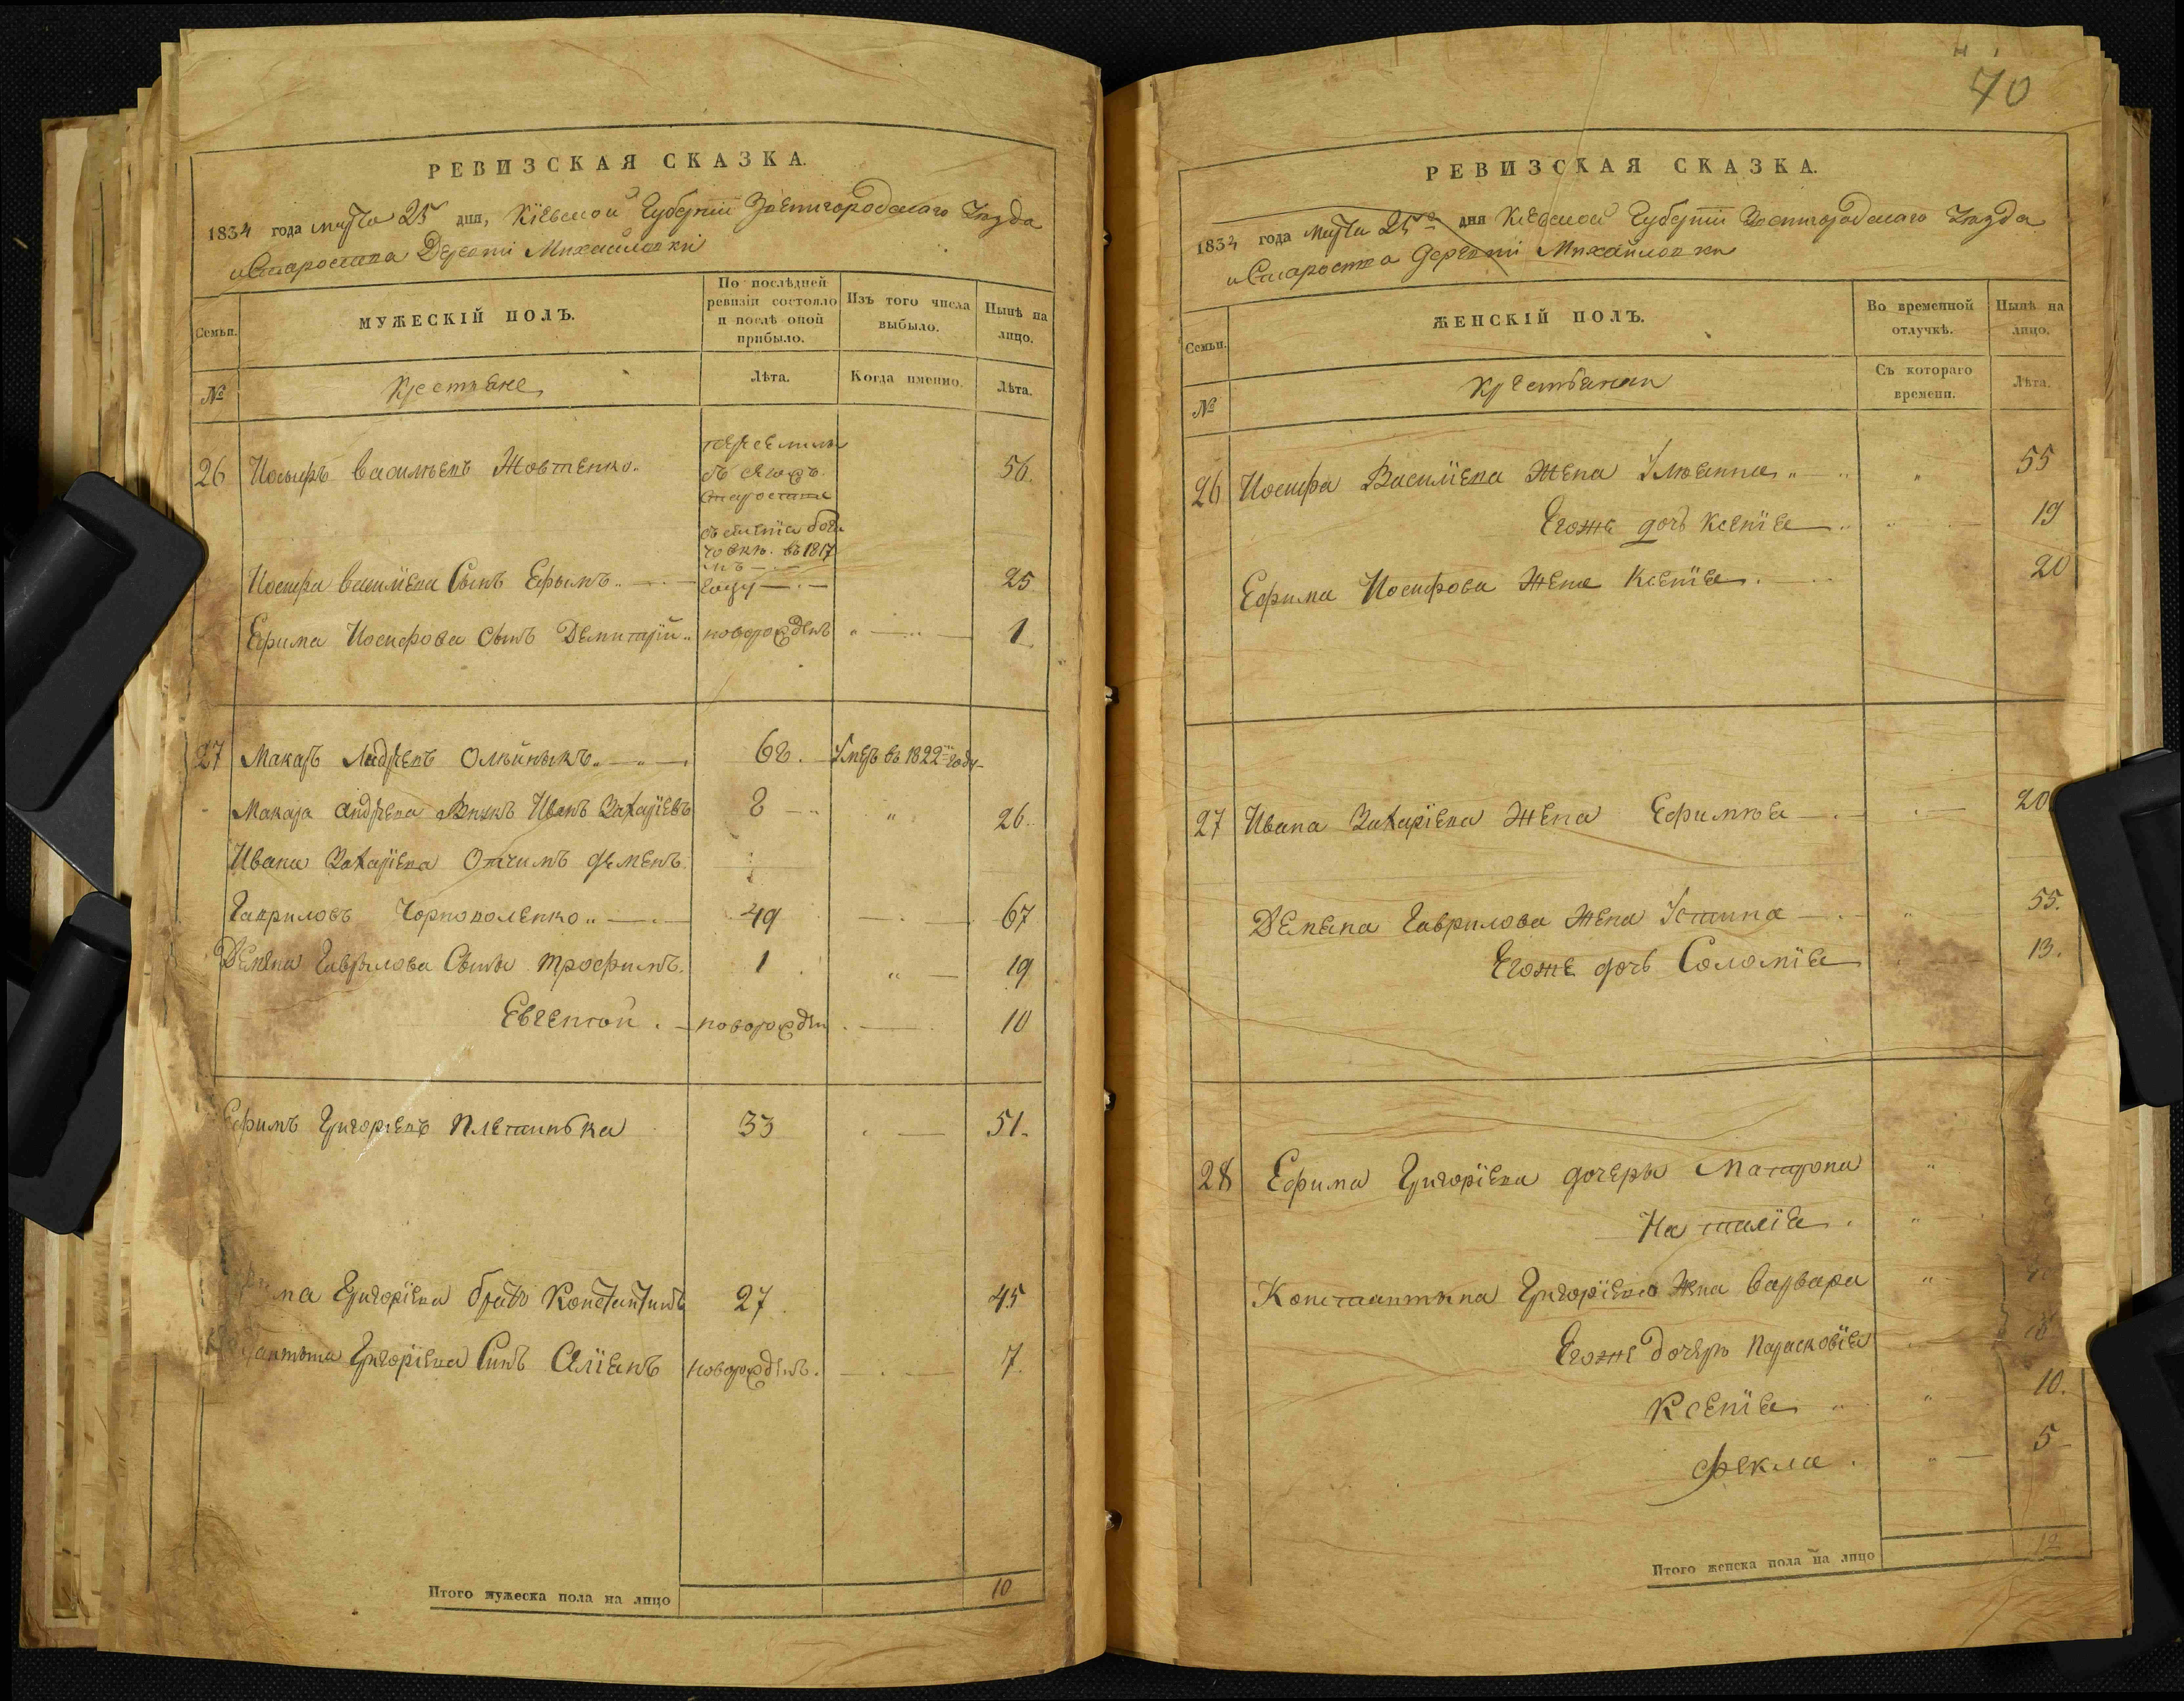 РЕВИЗСКАЯ СКАЗКА.
1834 года марта 25 дня, Кіевской Губерніи Звенигородскаго Уезда
Деревни Михайловки
Семьи.
МУЖЕСКІЙ ПОЛЪ.
По послѣдней ревизіи состояло и послѣ оной прибыло.
Изъ того числа выбыло.
Нынѣ на лицо.
№
Крестьяне
Лѣта.
Когда именно.
Лѣта.
26 Иосыфъ Васильевъ Жовтенко 56.
въ 1817
году
Иосифа Василіева Сынъ Ефымъ 25
Ефима Иосифова Сынъ Демитрій новорожденъ 1
27 Макаръ Андреевъ Олѣйныкъ 62. Умеръ въ 1822 году
Макара Андреева Внукъ Иванъ Захаріевъ 8 26.
Ивана Захаріева Отчимъ Демянъ
Гавриловъ 49 67
Демяна Гаврилова Сыны Трофимъ. 1 19
Евгеной новорожден 10
Ефимъ Григоріевъ Плетинька 33 51.
Григоріева братъ Константинъ 27 45
Григоріева Синъ новорожденъ. 7
Итого мужеска пола на лицо 10
70
РЕВИЗСКАЯ СКАЗКА.
1834 года Марта 25 дня Кіевской Губерніи Звенигородскаго Уезда
Деревни Михайловки
Семьи.
ЖЕНСКІЙ ПОЛЪ.
Во временной отлучкѣ.
Нынѣ на лицо.
№
Крестьянки
Съ котораго времени.
Лѣта.
26 Иосифа Василіева Жена Улянна 55
Егоже дочь Ксенія 19
Ефима Иосифова Жена Ксенія 20
27 Ивана Захаріева Жена Ефимія 20
Демяна Гаврилова Жена Устина 55.
Егоже дочь Соломія 13.
28 Ефима Григоріева дочеры Матрона
Наталія
Константына Григоріева Жена Варвара
Егоже дочеры Парасковія
Ксенія 10.
Фекла 5
Итого женска пола на лицо 12